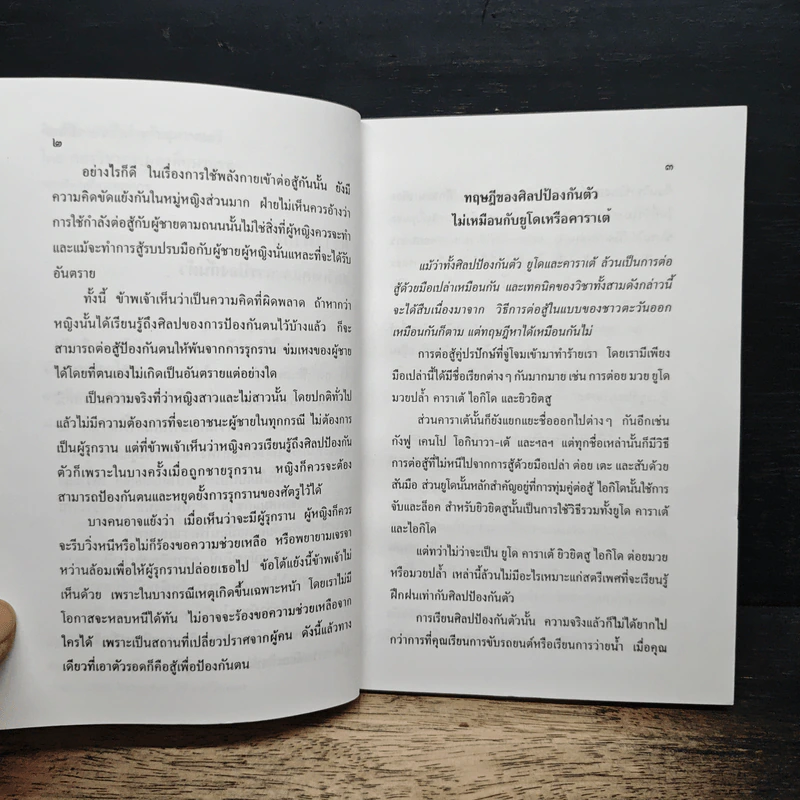 ๒
อย่างไรก็ดี ในเรื่องการใช้พลังกายเข้าต่อสู้กันนั้น ยังมี
ความคิดขัดแย้งกันในหมู่หญิงส่วนมาก ฝ่ายไม่เห็นควรอ้างว่า
การใช้กำลังต่อสู้กับผู้ชายตามถนนนั้นไม่ใช่สิ่งที่ผู้หญิงควรจะทำ
และแม้จะทำการสู้รบปรบมือกับผู้ชายผู้หญิงนั่นแหละที่จะได้รับ
อันตราย
ทั้งนี้ ข้าพเจ้าเห็นว่าเป็นความคิดที่ผิดพลาด ถ้าหากว่า
หญิงนั้นได้เรียนรู้ถึงศิลปของการป้องกันตนไว้บ้างแล้ว ก็จะ
สามารถต่อสู้ป้องกันตนให้พ้นจากการรุกราน ข่มเหงของผู้ชาย
ได้โดยที่ตนเองไม่เกิดเป็นอันตรายแต่อย่างใด
เป็นความจริงที่ว่าหญิงสาวและไม่สาวนั้น โดยปกติทั่วไป
แล้วไม่มีความต้องการที่จะเอาชนะผู้ชายในทุกกรณี ไม่ต้องการ
เป็นผู้รุกราน แต่ที่ข้าพเจ้าเห็นว่าหญิงควรเรียนรู้ถึงศิลปป้องกัน
ตัวก็เพราะในบางครั้งเมื่อถูกชายรุกราน หญิงก็ควรจะต้อง
สามารถป้องกันตนและหยุดยั้งการรุกรานของศัตรูไว้ได้
บางคนอาจแย้งว่า เมื่อเห็นว่าจะมีผู้รุกราน ผู้หญิงก็ควร
จะรีบวิ่งหนีหรือไม่ก็ร้องขอความช่วยเหลือ หรือพยายามเจรจา
หว่านล้อมเพื่อให้ผู้รุกรานปล่อยเธอไป ข้อโต้แย้งนี้ข้าพเจ้าไม่
เห็นด้วย เพราะในบางกรณีเหตุเกิดขึ้นเฉพาะหน้า โดยเราไม่มี
โอกาสจะหลบหนีได้ทัน ไม่อาจจะร้องขอความช่วยเหลือจาก
ใครได้ เพราะเป็นสถานที่เปลี่ยวปราศจากผู้คน ดังนี้แล้วทาง
เดียวที่เอาตัวรอดก็คือสู้เพื่อป้องกันตน
๓
ทฤษฎีของศิลปป้องกันตัว
ไม่เหมือนกับยูโดเหรือคาราเต้
แม้ว่าทั้งศิลปป้องกันตัว ยูโดและคาราเต้ ล้วนเป็นการต่อ
สู้ด้วยมือเปล่าเหมือนกัน และเทคนิคของวิชาทั้งสามดังกล่าวนี้
จะได้สืบเนื่องมาจาก วิธีการต่อสู้ในแบบของชาวตะวันออก
เหมือนกันก็ตาม แต่ทฤษฎีหาได้เหมือนกันไม่
การต่อสู้คู่ปรปักษ์ที่จู่โจมเข้ามาทำร้ายเรา โดยเรามีเพียง
มือเปล่านี้ได้มีชื่อเรียกต่างๆ กันมากมาย เช่น การต่อย มวย ยูโด
มวยปล้ำ คาราเต้ ไอกิโด และยิวยิตสู
ส่วนคาราเต้นั้นก็ยังแยกแยะชื่อออกไปต่างๆ กันอีกเช่น
กังฟู เคนโป โอกินาวา-เต้ และฯลฯ แต่ทุกชื่อเหล่านั้นก็มีวิธี
การต่อสู้ที่ไม่หนีไปจากการสู้ด้วยมือเปล่า ต่อย เตะ และสับด้วย
สันมือ ส่วนยูโดนั้นหลักสำคัญอยู่ที่การทุ่มคู่ต่อสู้ ไอกิโดนั้นใช้การ
จับและล็อค สำหรับยิวยิตสูนั้นเป็นการใช้วิธีรวมทั้งยูโด คาราเต้
และไอกิโด
แต่ทว่าไม่ว่าจะเป็น ยูโด คาราเต้ ยิวยิตสู ไอกิโด ต่อยมวย
หรือมวยปล้ำ เหล่านี้ล้วนไม่มีอะไรเหมาะแก่สตรีเพศที่จะเรียนรู้
ฝึกฝนเท่ากับศิลปป้องกันตัว
การเรียนศิลปป้องกันตัวนั้น ความจริงแล้วก็ไม่ได้ยากไป
กว่าการที่คุณเรียนการขับรถยนต์หรือเรียนการว่ายน้ำ เมื่อคุณ